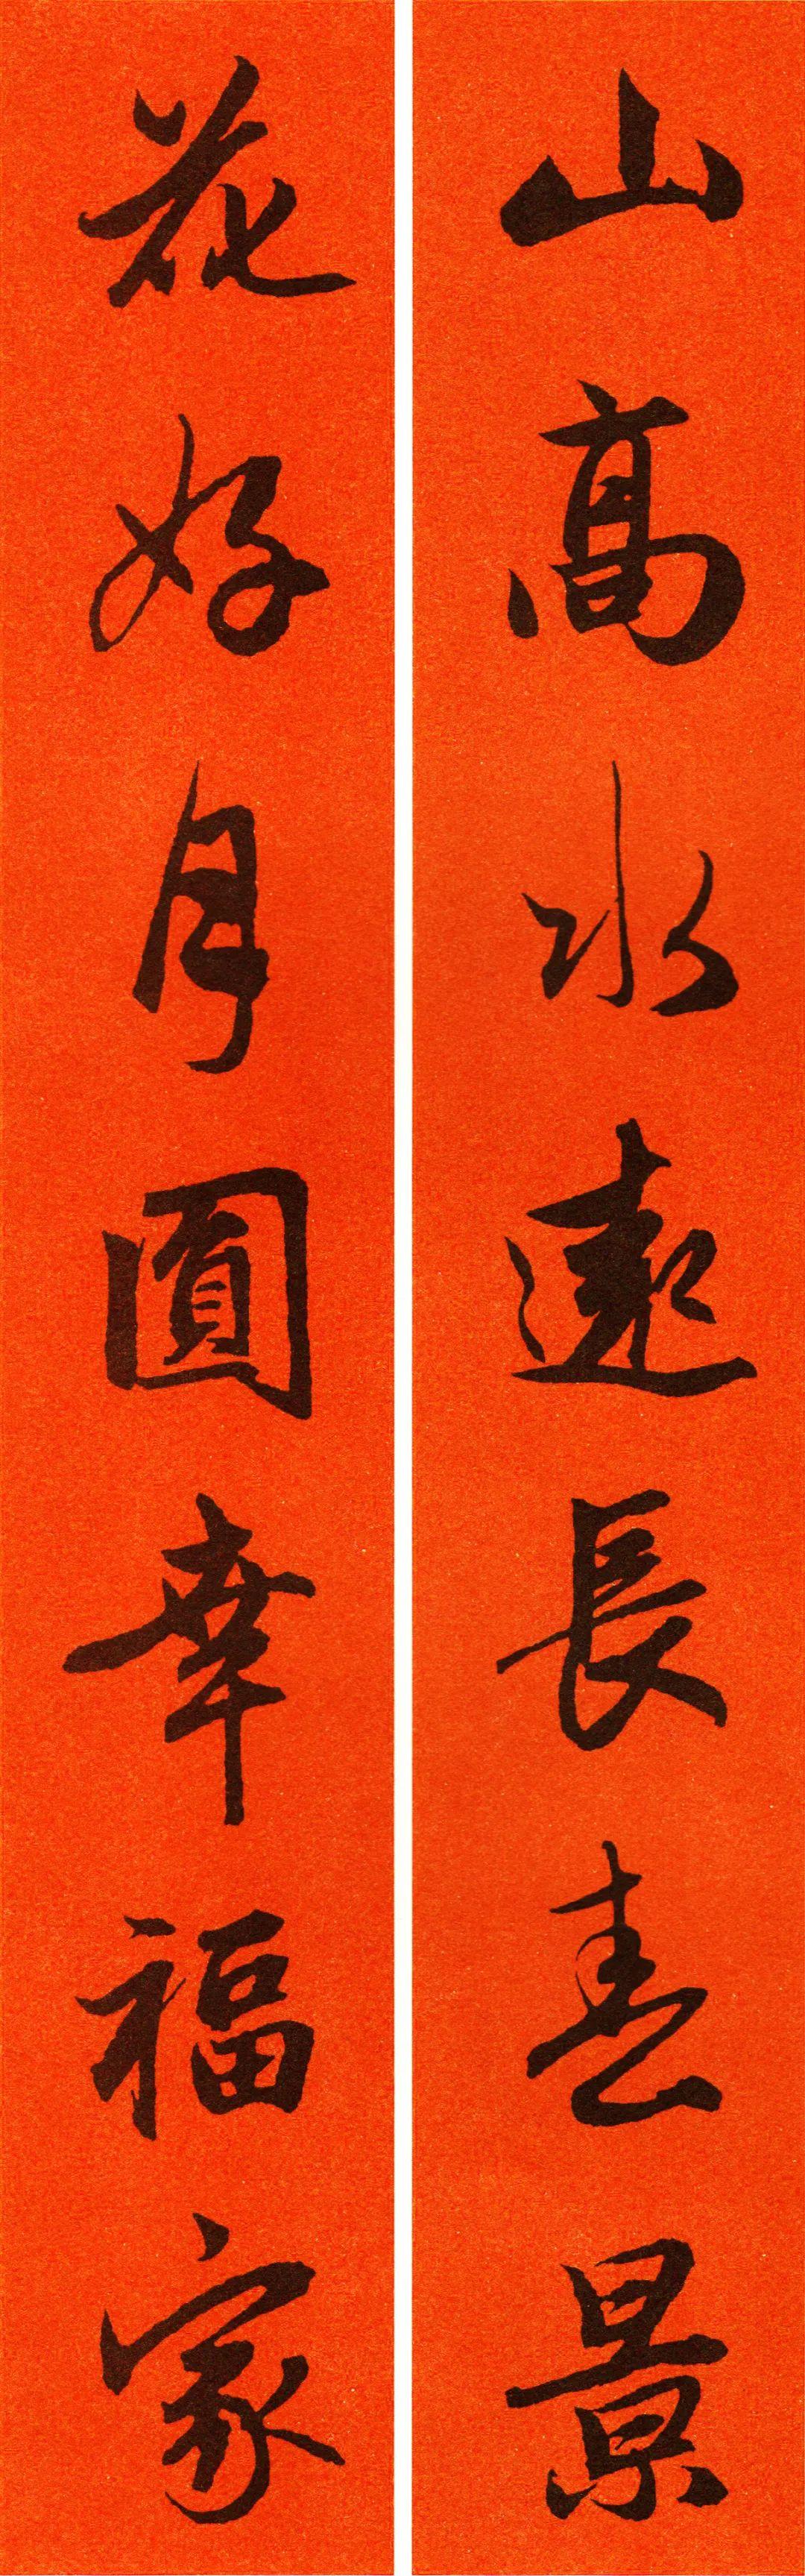 山高水遠長春景
花好月圓幸福家